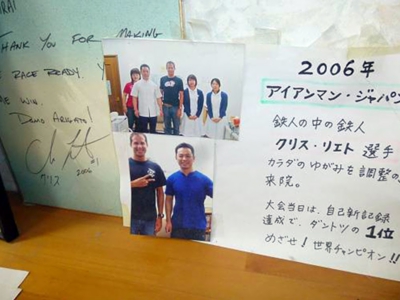 THANK YOU FOR MAKING
RACE READY
WIN.
DOMO ARIGATO!
2006
クリス
2006年
アイアンマン・ジャパン
鉄人の中の鉄人
クリス・リエト 選手
カラダのゆがみを調整の
来院。
大会当日は、自己新記録
達成で、ダントツの1位
めざせ！世界チャンピオン!!